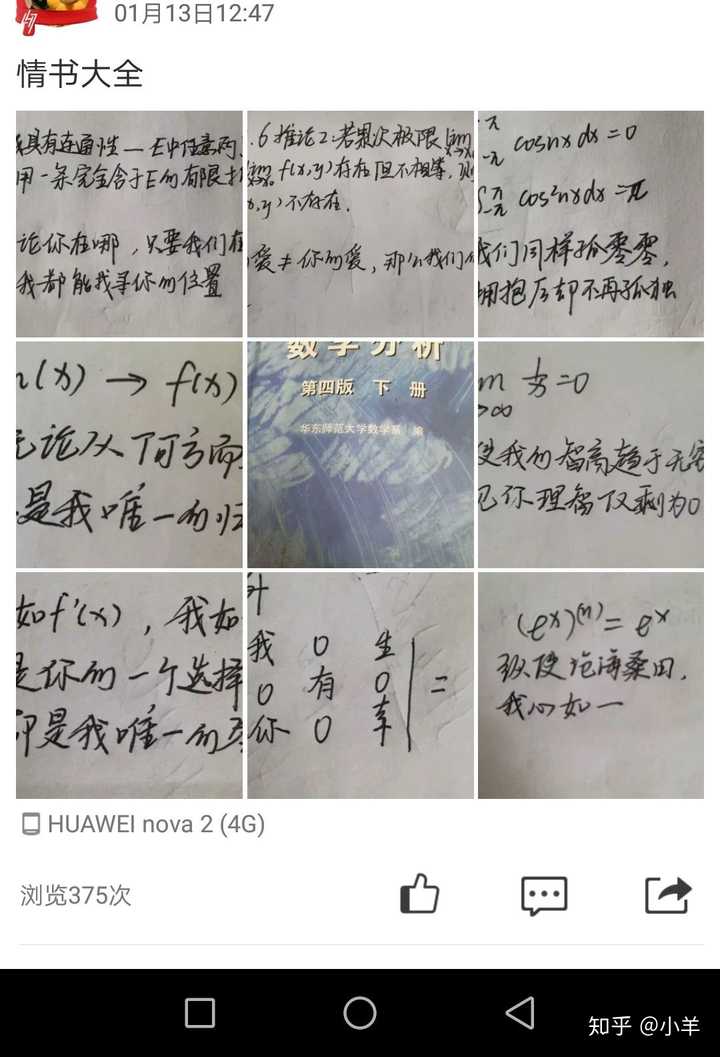 01月13日12:47
情书大全
具有连通性—E中任意两
用一条完全含于E的有限折
论你在哪,只要我们在
我都能找寻你的位置
.6 推论2:若累次极限 lim
lim f(x,y)存在但不相等,则
x,y)不存在.
爱≠你的爱,那么我们
π
-π cosnx dx = 0
∫π-π cos²nxdx=π
我们同样孤零零,
拥抱后却不再孤独
(x) → f(x)
无论从何方而
是我唯一的归
数学分析
第四版 下册
华东师范大学数学系 编
m 1/x = 0
→∞
使我的智商趋于无穷
见你理智仅剩为0
如f'(x),我如
是你的一个选择
却是我唯一的
我 0 生
0 有 0 =
你 0 幸
(eˣ)⁽ⁿ⁾ = eˣ
纵使沧海桑田,
我心如一
HUAWEI nova 2 (4G)
浏览375次
知乎 @小羊